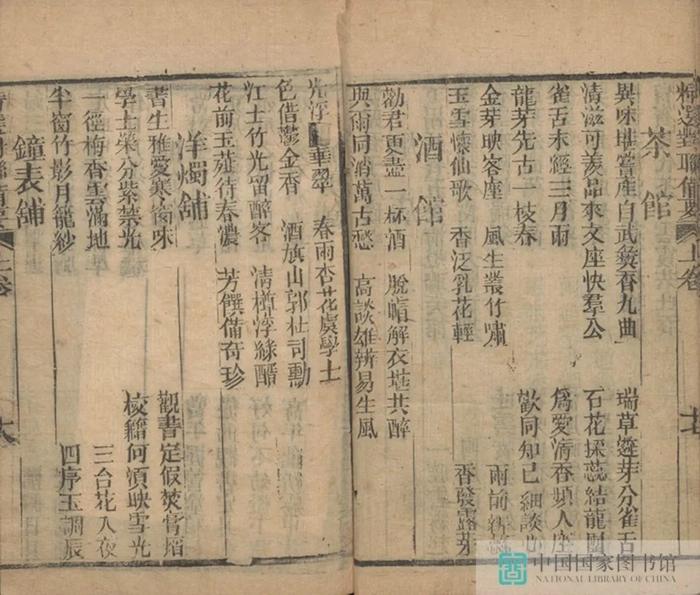 上卷
茶館
異味堪嘗產自武彛香九曲 瑞草蓬芽分雀舌
清滋可羨品來文座快羣公 石花採蕊結龍團
雀舌未經三月雨 爲愛清香頻入座
龍芽先占一枝春 歡同知己細談
金芽映客座 風生叢竹嘯 雨前
玉雪懷仙歌 香泛乳花輕 香發露芽
酒館
勸君更盡一杯酒 脫帽解衣堪共醉
與爾同消萬古愁 高談雄辨易生風
光浮 華翠 春雨杏花虞學士
色借鬱金香 酒旗山郭杜司勳
江士竹光留醉客 清樽浮綠醑
花前玉蕋待春濃 芳饌備奇珍
洋燭舖
書生雅愛寒窗味 觀書定假焚膏焰
學士榮分紫禁光 校籍何須映雪光
一徑梅香雪滿地 三台花入夜
半窗竹影月籠紗 四序玉調辰
鐘表舖
上卷
中国国家图书馆
NATIONAL LIBRARY OF CHINA